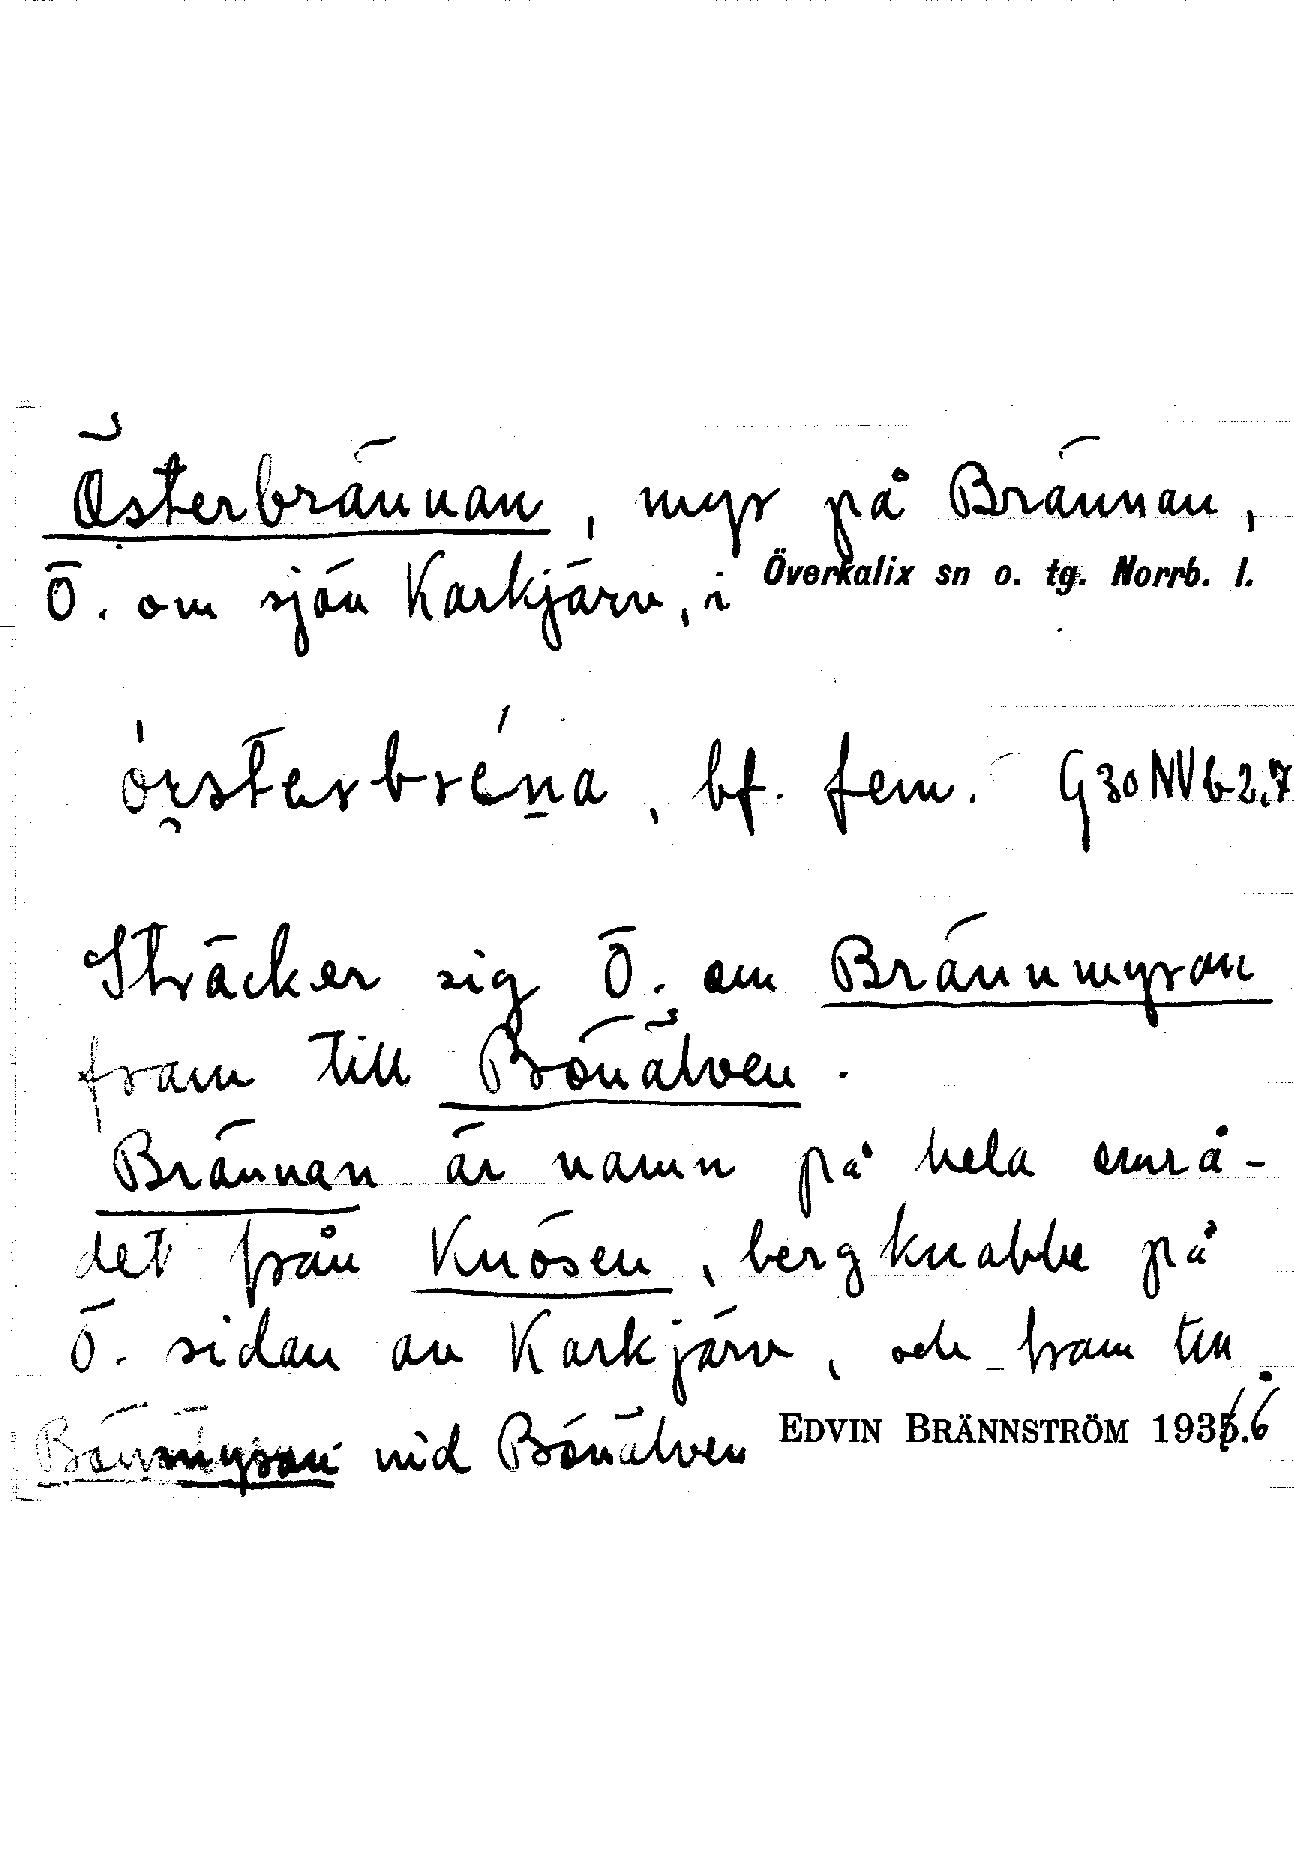 Österbrännan, myr på Brännan,
Ö. om sjön Karkjärv, i Överkalix sn o. tg. Norrb. l.
bf. fem. G 30 NV b 2,7
Sträcker sig Ö. om Brännmyran
fram till Bönälven.
Brännan är namn på hela områ-
det från Knösen, bergknabbe på
Ö. sidan av Karkjärv, och fram till
Bönmyran vid Bönälven EDVIN BRÄNNSTRÖM 1936.6